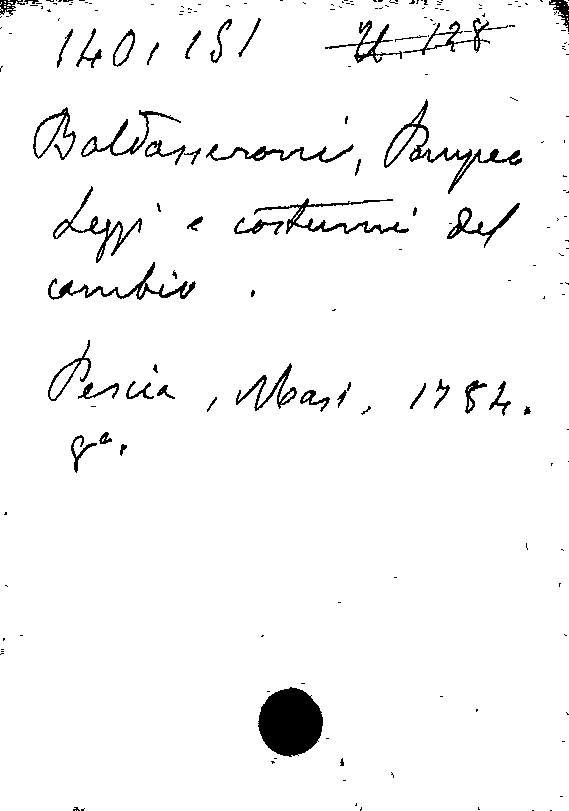 140,151 U. 128
Baldasseroni, Pompeo
Leggi e costumi del
cambio.
Pescia, Masi, 1784.
8°.